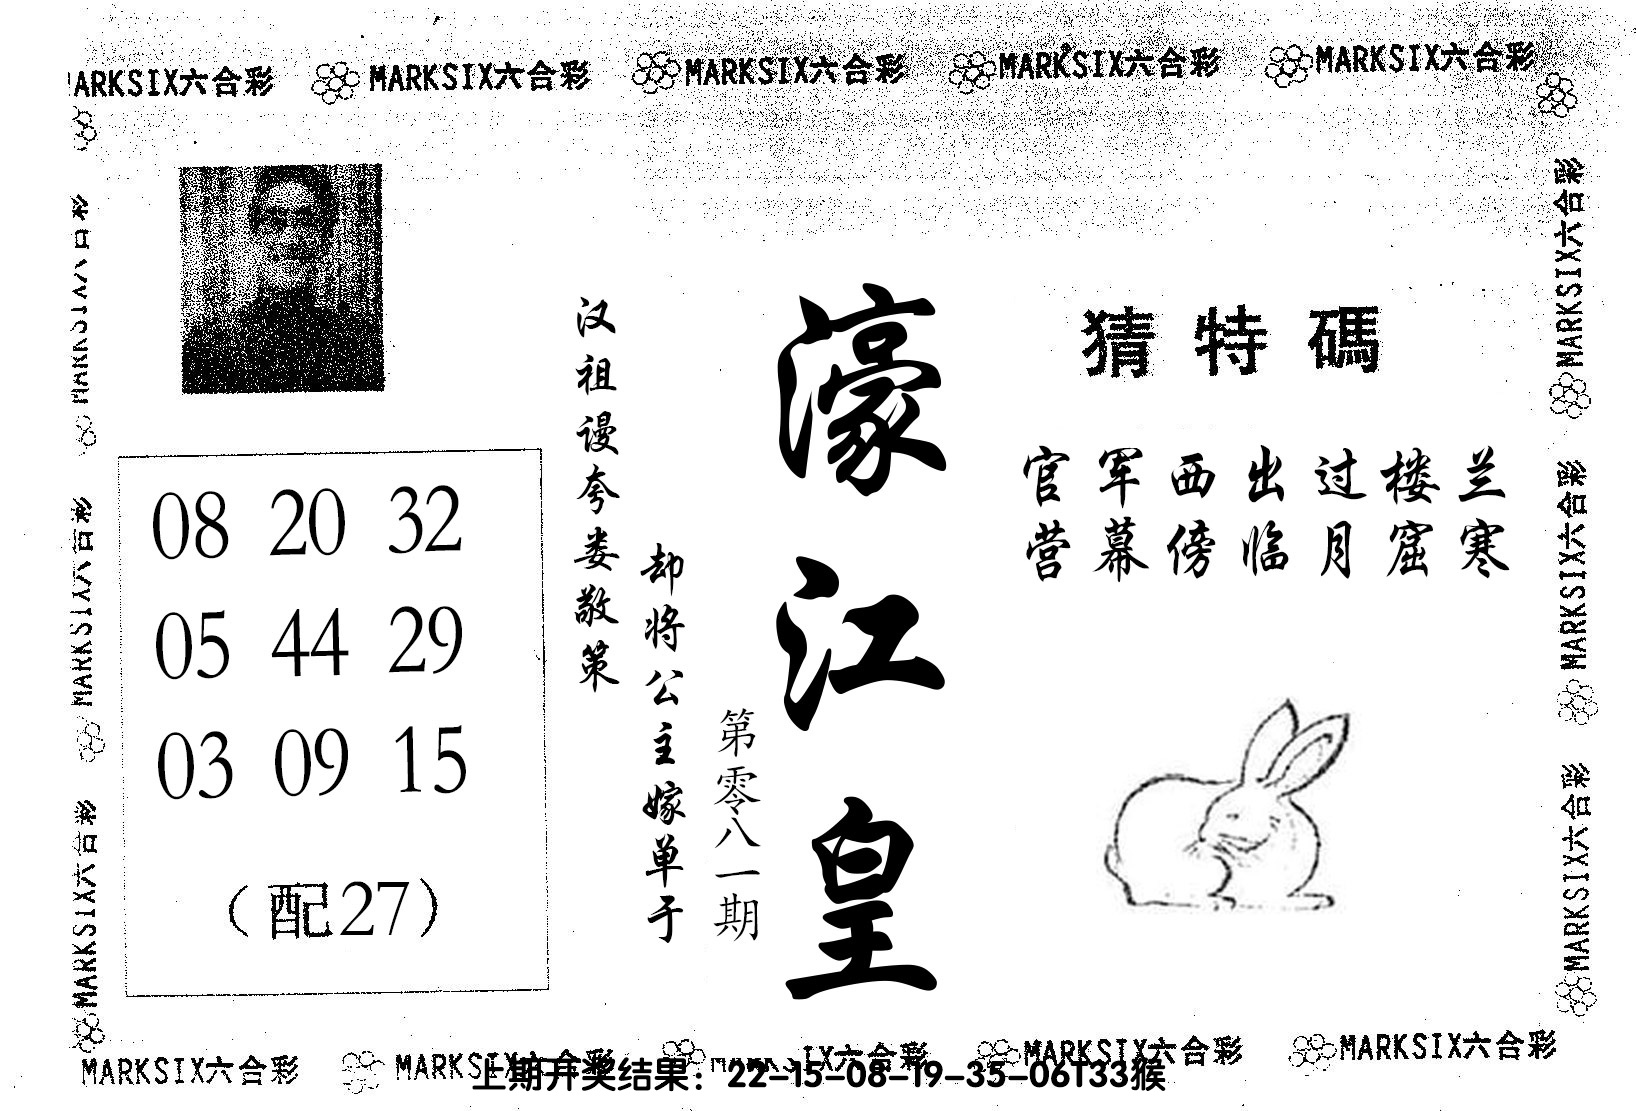 MARKSIX六合彩 MARKSIX六合彩 MARKSIX六合彩 MARKSIX六合彩 MARKSIX六合彩
MARKSIX六合彩 MARKSIX六合彩 MARKSIX六合彩
MARKSIX六合彩 MARKSIX六合彩 MARKSIX六合彩
08 20 32
05 44 29
03 09 15
（配27）
汉祖谩夸娄敬策
却将公主嫁单于
第零八一期
濠江皇
猜特碼
官军西出过楼兰
营幕傍临月窟寒
MARKSIX六合彩 MARKSIX六合彩 MARKSIX六合彩 MARKSIX六合彩 MARKSIX六合彩
上期开奖结果：22-15-08-19-35-06T33猴